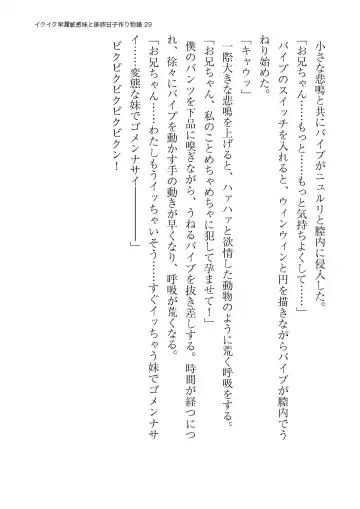 イクイク早漏敏感妹と排卵日子作り物語 29
小さな悲鳴と共にバイブがニュルリと膣内に侵入した。
「お兄ちゃん……もっと……もっと気持ちよくして……」
バイブのスイッチを入れると、ウィンウィンと円を描きながらバイブが膣内でう
ねり始めた。
「キャウッ」
一際大きな悲鳴を上げると、ハァハァと欲情した動物のように荒く呼吸をする。
「お兄ちゃん、私のことめちゃめちゃに犯して孕ませて！」
僕のパンツを下品に嗅ぎながら、うねるバイブを抜き差しする。時間が経つにつ
れ、徐々にバイブを動かす手の動きが早くなり、呼吸が荒くなる。
「お兄ちゃん……わたしもうイッちゃいそう……すぐイッちゃう妹でゴメンナサ
イ……変態な妹でゴメンナサイ――――」
ビクビクビクビクビクン！